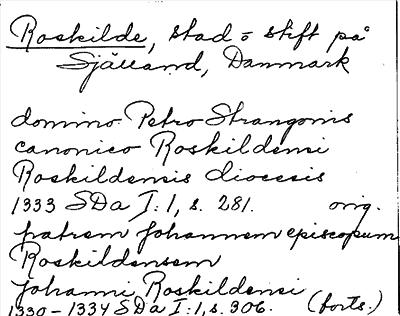 Roskilde, stad o stift på
Själland, Danmark
domino Petro Strangonis
canonico Roskildensi
Roskildensis diocesis
1333 SDa I:1, s. 281. orig.
patrem Johannem episcopum
Roskildensem
Johanni Roskildensi
1330-1334 SDa I:1, s. 306. (forts.)